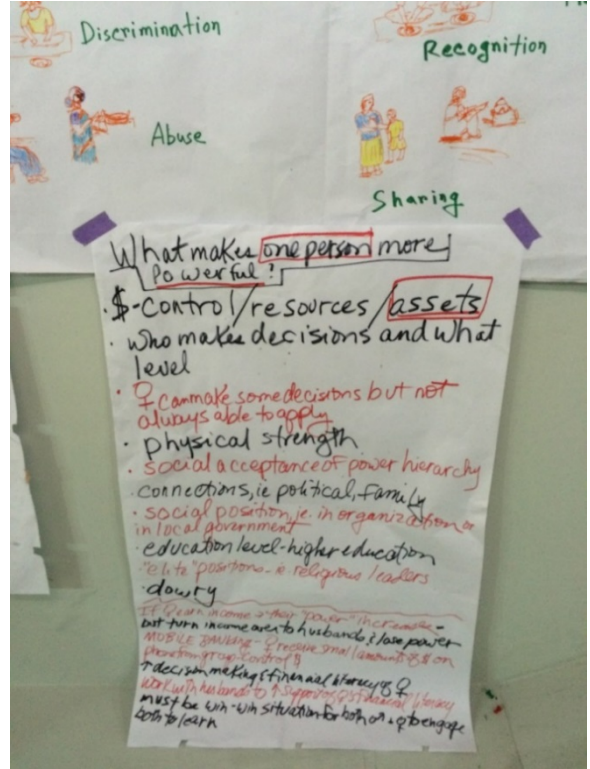 Discrimination
Recognition
Abuse
Sharing
What makes one person more
Powerful?
·$-control/resources/assets
· who makes decisions and what
level
· ♀ can make some decisions but not
always able to apply
· physical strength
· social acceptance of power hierarchy
·connections, ie political, family
· social position, ie. in organization or
in local government
·education level-higher education
·"elite" positions - ie religious leaders
·dowry
If ♀ earn income → their "power" increases-
but turn income over to husbands & lose power
MOBILE BANKING - ♀ receive small amounts of $ on
phone control $
↑ decision making & financial literacy of ♀
work with husbands to ↑ support of ♀ financial literacy
must be win-win situation for both ♂ + ♀ to engage
both to learn